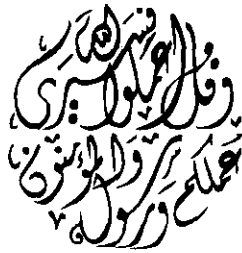 وقل اعملوا فسيرى الله
عملكم ورسوله والمؤمنون